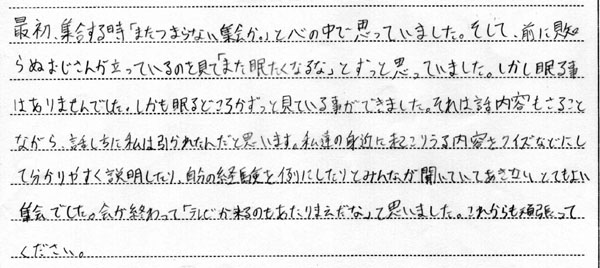 最初、集合する時「またつまらない集会か。」と心の中で思っていました。そして、前に見知
らぬおじさんが立っているのを見て「また眠たくなるな」とずっと思っていました。しかし眠る事
はありませんでした。しかも眠るどころかずっと見ている事ができました。それは話内容もさること
ながら、話し方に私は引かれたんだと思います。私達の身近に起こりうる内容をクイズなどにし
て分かりやすく説明したり、自分の経験を例にしたりとみんなが聞いていてあきない、とてもよい
集会でした。会が終わって「テレビが来るのもあたりまえだな」と思いました。これからも頑張って
ください。